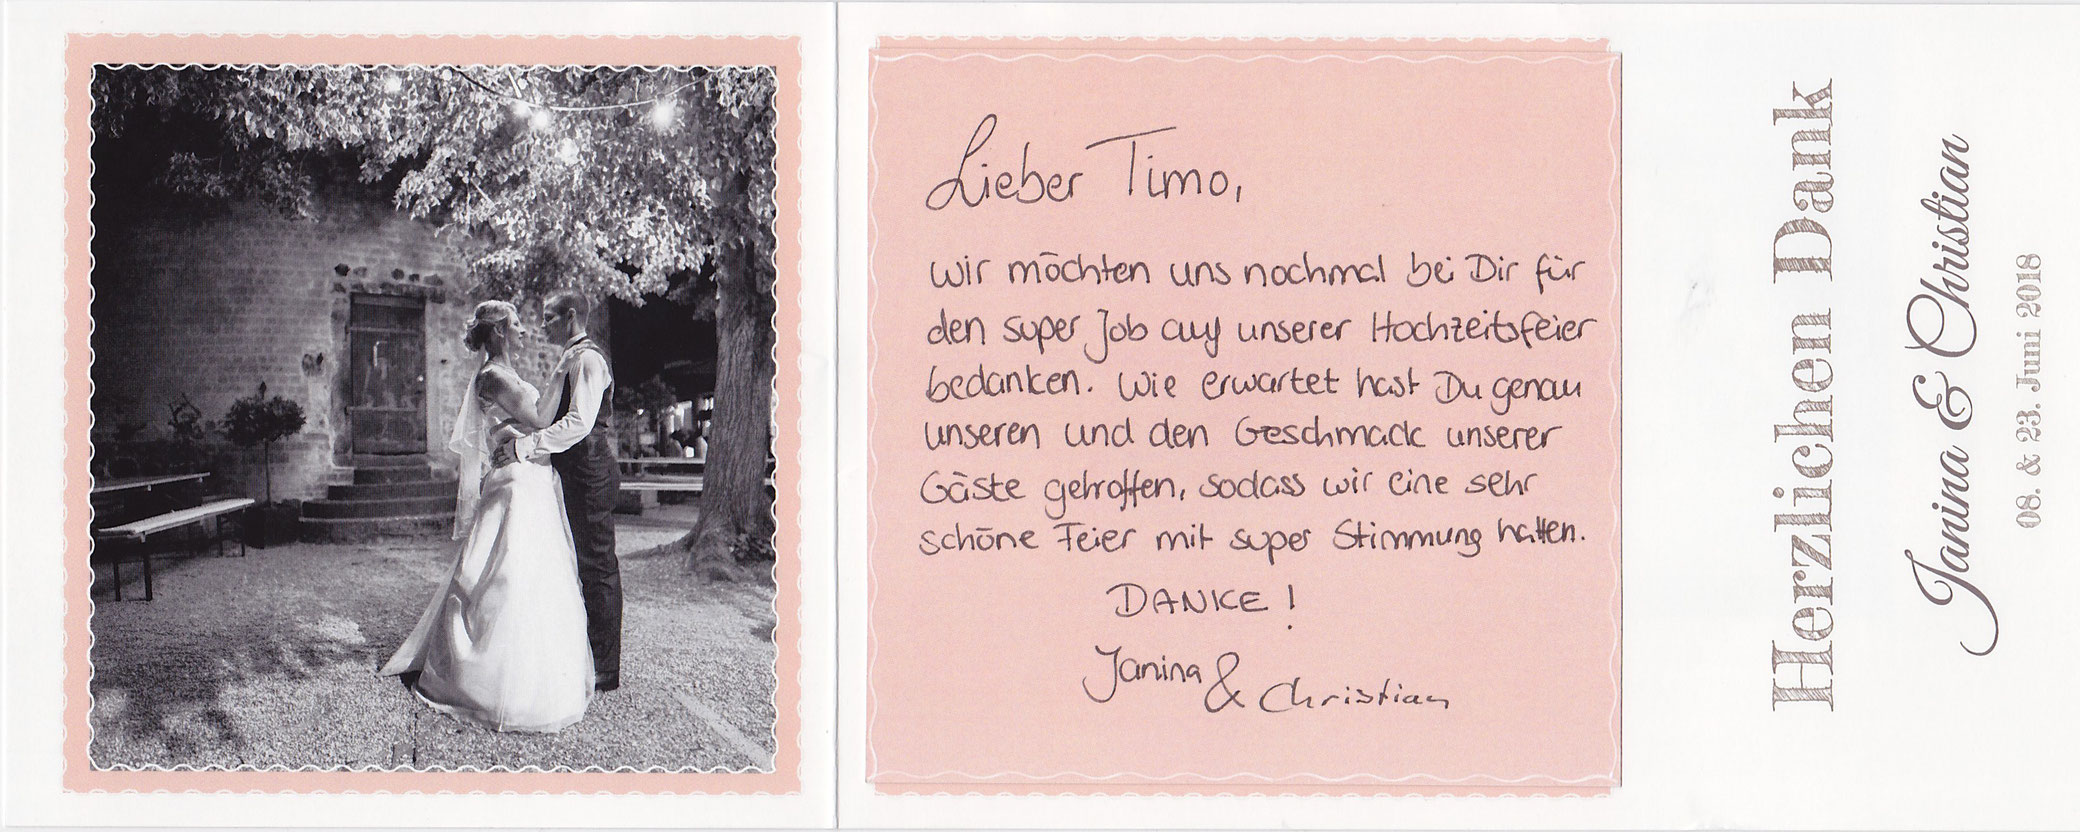 Lieber Timo,
wir möchten uns nochmal bei Dir für
den super Job auf unserer Hochzeitsfeier
bedanken. Wie erwartet hast Du genau
unseren und den Geschmack unserer
Gäste getroffen, sodass wir eine sehr
schöne Feier mit super Stimmung hatten.
DANKE!
Janina & Christian
Herzlichen Dank
Janina & Christian
08. & 23. Juni 2018